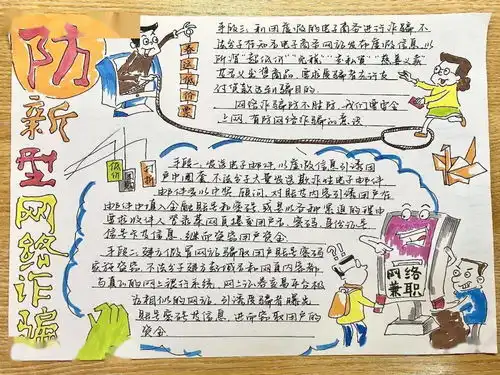 防新型网络诈骗
春运低价票
手段三、利用虚假的电子商务进行诈骗。不
法分子在知名电子商务网站发布虚假信息,以
所谓"超低价""免税""走私货""慈善义卖"
网络诈骗防不胜防,我们要安全
上网,有防网络诈骗的意识
低价
打折
手段一、发送电子邮件,以虚假信息引诱用
户中圈套。不法分子大量发送欺诈性电子邮件
邮件多以中奖、顾问、对账等内容引诱用户在
邮件中填入金融账号和密码,或是以各种
要求收件人登录某网页提交用户名、密码、身份证号
信用卡号等信息,继而盗窃用户资金
手段二、建立假冒网站骗取用户账号密码
实施盗窃。不法分子建立起域名和网页内容都
与真正的网上银行系统、网上证券交易平台极
为相似的网站,引诱
账号密码等信息,进而窃取用户的
资金
网络
兼职